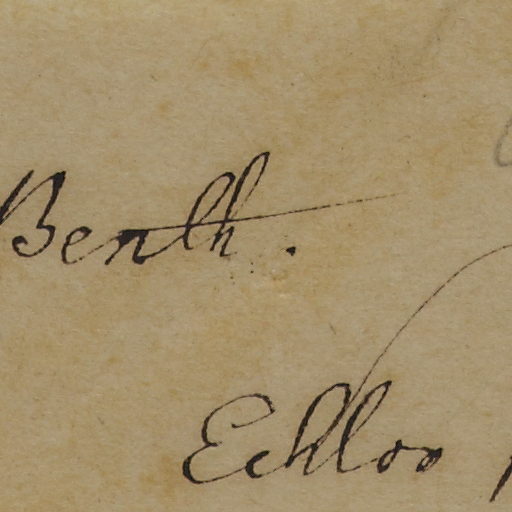 Benth.
Echloo